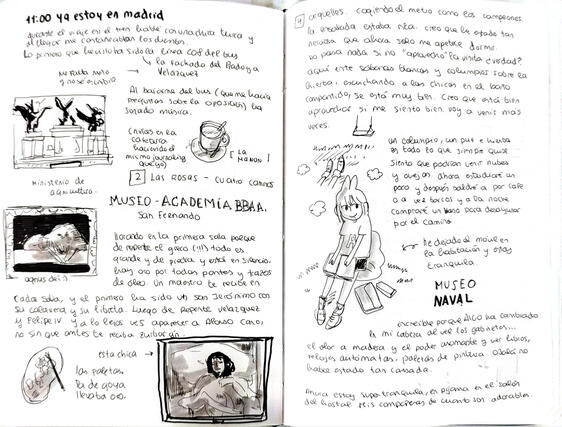 11:00 ya estoy en madrid
durante el viaje en el tren hablé con una chica turca y
al llegar me castañeaban los dientes.
Lo primero que he visto ha sido la línea 008 del bus
↳ la fachada del Prado y
Velázquez
Me gusta
y no se escribir
Al bajarme del bus (que me hacía
preguntas sobre la oposición) ha
sonado música.
Chicas en la
cafetería
haciendo el
mismo journaling
que yo
[LA
MAÑANA]
ministerio de
agricultura.
2 Las Rosas - Cuatro caminos
MUSEO-ACADEMIA BBAA.
San Fernando
llorando en la primera sala porque
de repente el greco (!!!) todo es
grande y de piedra y está en silencio.
hay oro por todas partes y trazos
de óleo. Un maestro te recibe en
agnus dei
cada sala, y el primero ha sido un San Jerónimo con
su calavera y su libreta. Luego de repente Velázquez
y Felipe IV y a lo lejos ves aparecer a Alonso Cano,
no sin que antes te reciba Zurbarán.
esta chica →
las paletas
la de goya
llevaba oro.
4
arqueólogos. cogiendo el metro como los campeones.
la ensalada estaba rica. creo que he estado tan
nerviosa que ahora solo me apetece dormir.
no pasa nada si no "aprovecho" la visita ¿verdad?
aquí entre sábanas blancas y columpios sobre la
hierba, escuchando a las chicas en el baño
compartido, se está muy bien. creo que está bien
aprovechar si me siento bien. voy a venir más
veces.
un columpio, un pie e hierba
es todo lo que siempre quise
siento que podrían venir nubes
y ovejas. ahora estudiaré un
poco y después saldré a por café
o a ver barcos y a la noche
compraré un bono para desayunar
por el camino.
↳ he dejado el móvil en
la habitación y estoy
tranquila.
MUSEO
NAVAL
increíble porque ALGO ha cambiado
en mi cabeza al ver los gabinetes...
el olor a madera y el poder asomarte y ver libros,
relojes autómatas, paletas de pintura. Ojalá no
haber estado tan cansada.
Ahora estoy super tranquila, en pijama en el salón
del hostal. Mis compañeras de cuarto son adorables.